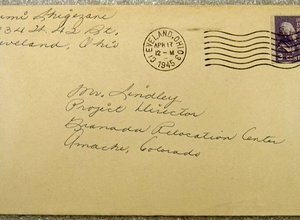 umi Shigezane
34 St. 42 St.
leveland, Ohio
CLEVELAND, OHIO
APR 17
12-M
1945
Mr. Lindley
Project Director
Granada Relocation Center
Amache, Colorado